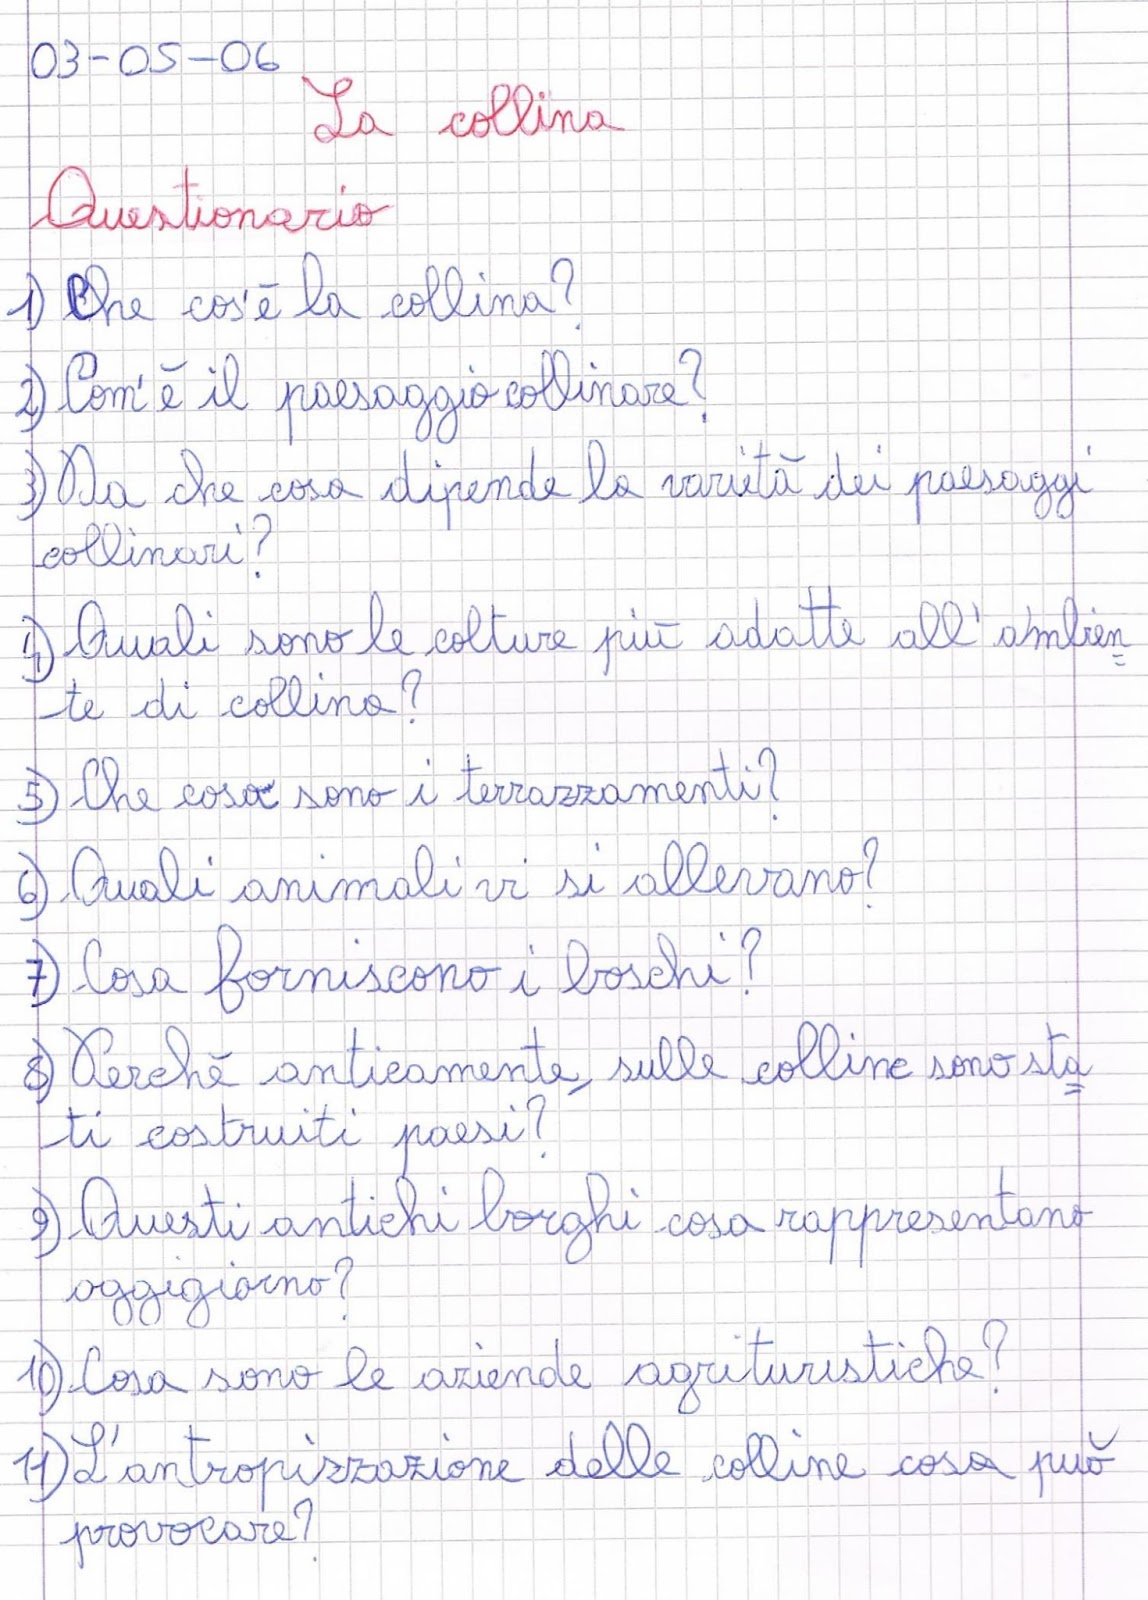 03-05-06
La collina
Questionario
1) Che cos'è la collina?
2) Com'è il paesaggio collinare?
3) Da che cosa dipende la varietà dei paesaggi
collinari?
4) Quali sono le colture più adatte all'ambien=
te di collina?
5) Che cosa sono i terrazzamenti?
6) Quali animali vi si allevano?
7) Cosa forniscono i boschi?
8) Perché anticamente, sulle colline sono sta=
ti costruiti paesi?
9) Questi antichi borghi cosa rappresentano
oggigiorno?
10) Cosa sono le aziende agrituristiche?
11) L'antropizzazione delle colline cosa può
provocare?